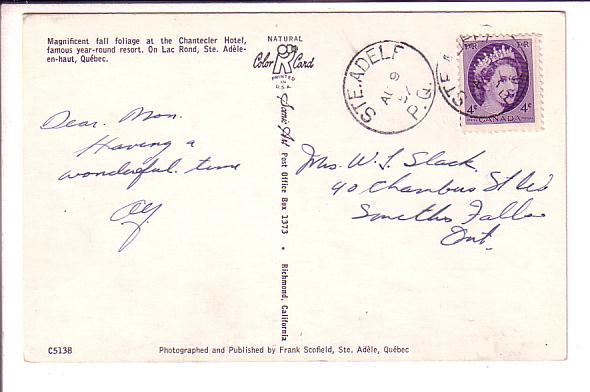 Magnificent fall foliage at the Chantecler Hotel,
famous year-round resort. On Lac Rond, Ste. Adèle-
en-haut, Québec.
NATURAL
Color Card
PRINTED
IN
U.S.A.
STE. ADELE
AU 9
57
P.Q.
STE. A
EIIR EIIR
4¢ CANADA 4¢
Dear. Mom.
Having a
wonderful. time
Scenic Art Post Office Box 1373 • Richmond, California
Mrs. W. J. Slack.
40 Chambers St
Smiths Falls
Ont.
C5138
Photographed and Published by Frank Scofield, Ste. Adèle, Québec